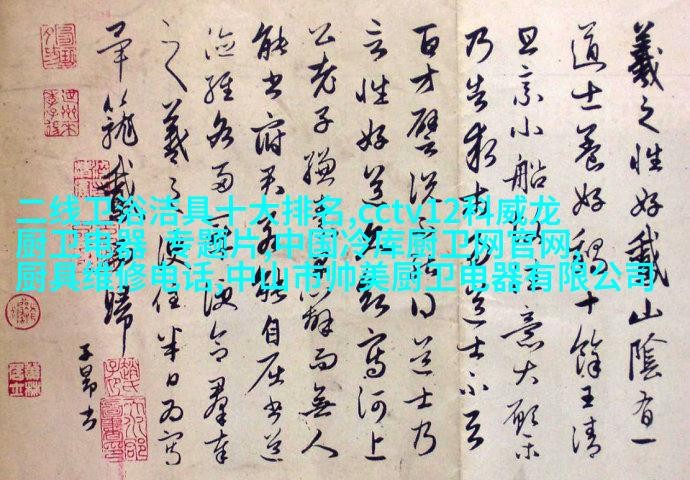 羲之性好鵞山陰有一
道士養好鵝十餘王清
旦乘小船故往意大願樂
乃告求市易道士不与
百方譬說不能得道士乃
言性好道久欲寫河上
公老子縑素早辦而無人
能書府君若能自屈書道
德經各兩章便合羣奉
之羲之便住半日為寫
畢籠鵞而歸
子昂書
二线卫浴洁具十大排名,cctv12科威龙
厨卫电器 专题片,中国冷库厨卫网官网,
厨具维修电话,中山市帅美厨卫电器有限公司